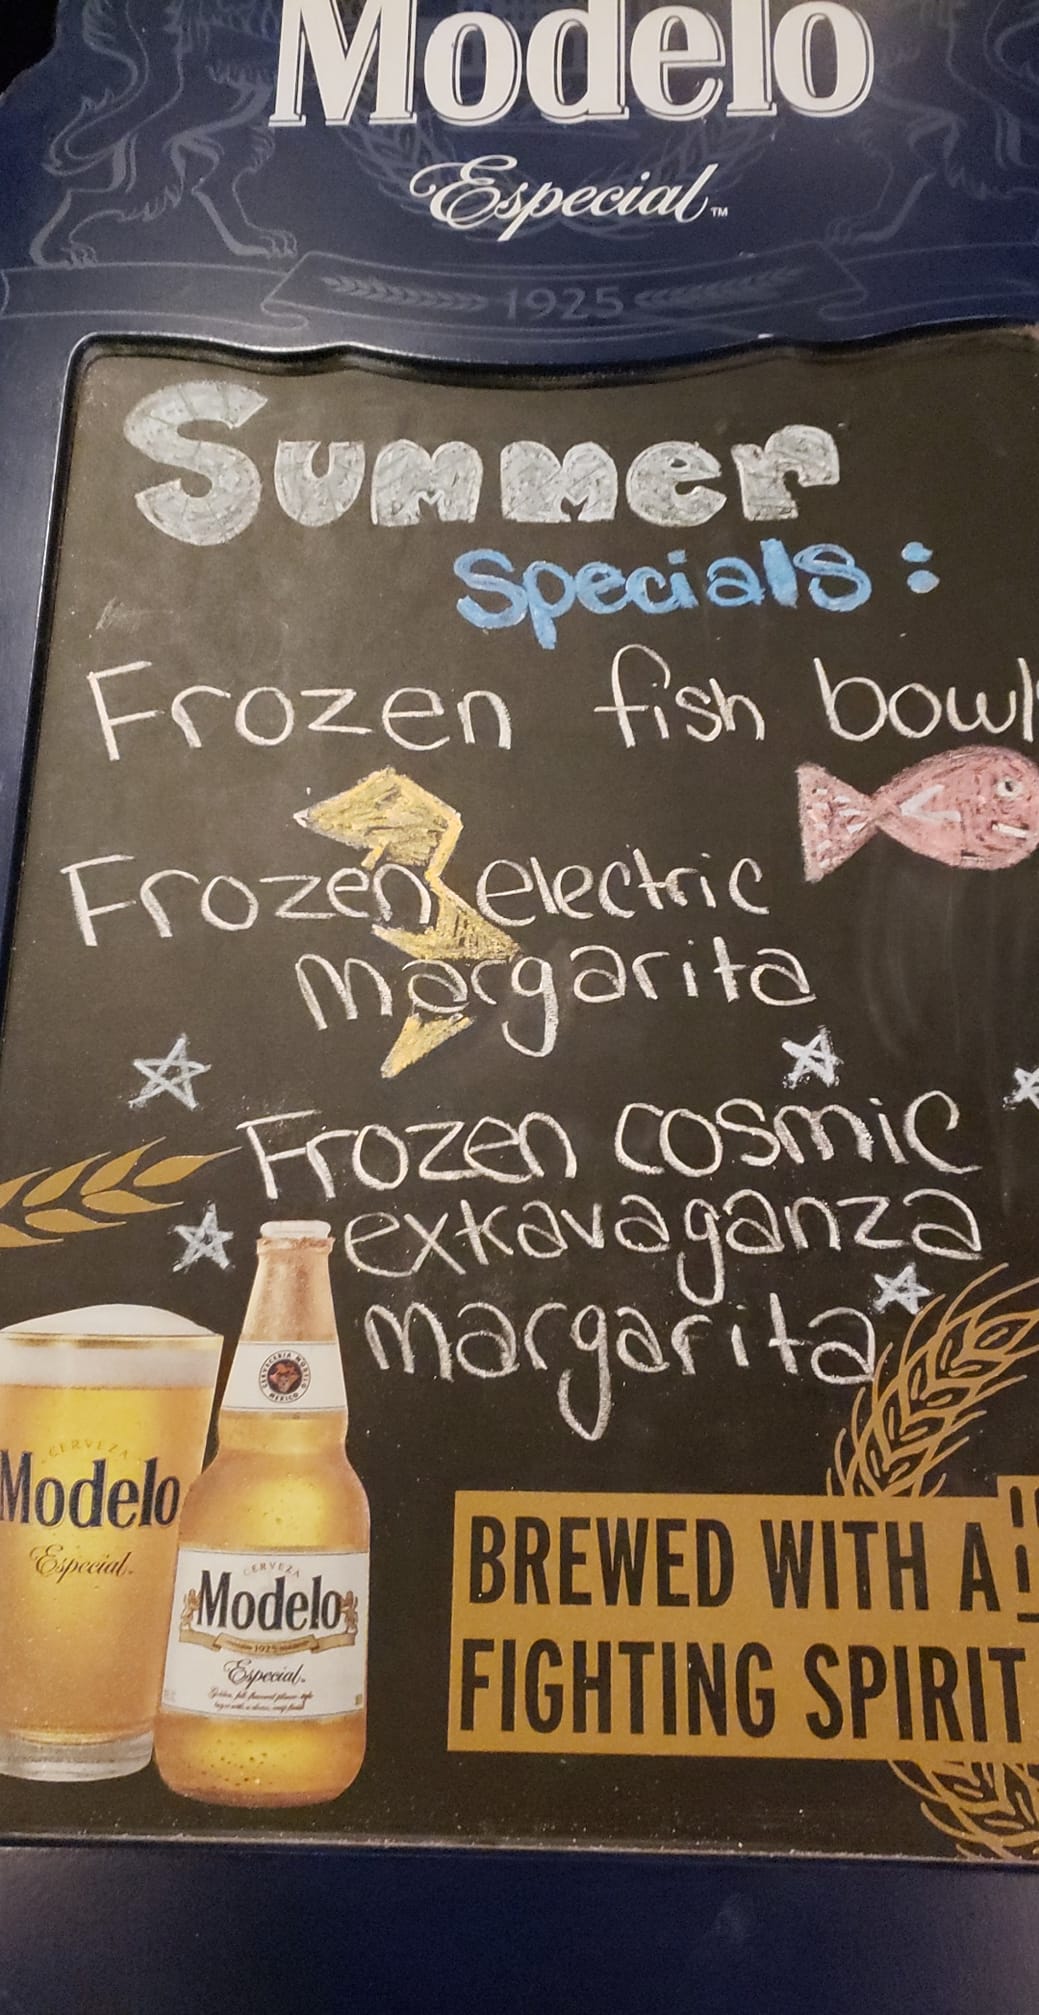 Modelo
Especial™
1925
Summer
Specials:
Frozen fish bowl
Frozen electric
margarita
Frozen cosmic
extravaganza
margarita
CERVEZA
Modelo
Especial
CERVEZA
Modelo
1925
Especial
BREWED WITH A
FIGHTING SPIRIT